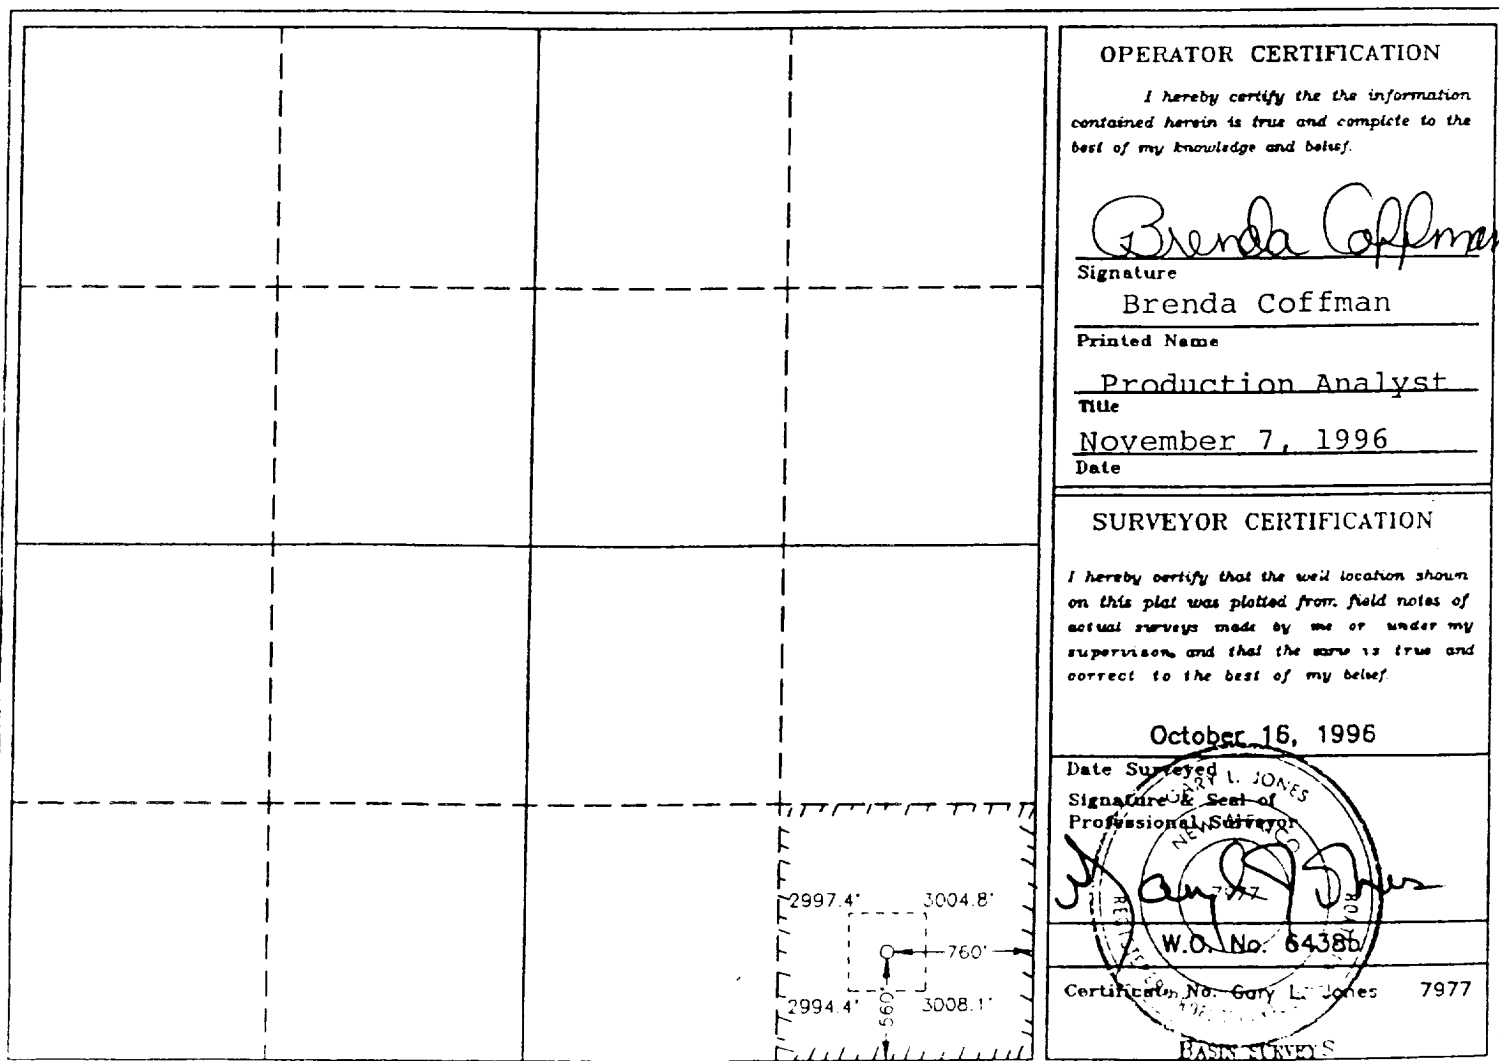 2997.4'
3004.8'
760'
560'
2994.4'
3008.1'
OPERATOR CERTIFICATION
I hereby certify the the information
contained herein is true and complete to the
best of my knowledge and belief.
Brenda Coffman
Signature
Brenda Coffman
Printed Name
Production Analyst
Title
November 7, 1996
Date
SURVEYOR CERTIFICATION
I hereby certify that the well location shown
on this plat was plotted from field notes of
actual surveys made by me or under my
supervison, and that the same is true and
correct to the best of my belief.
October 16, 1996
Date Surveyed
Signature & Seal of
Professional Surveyor
GARY L. JONES
NEW MEXICO
7977
W.O. No. 6438b
Certificate No. Gary L. Jones 7977
BASIN SURVEYS